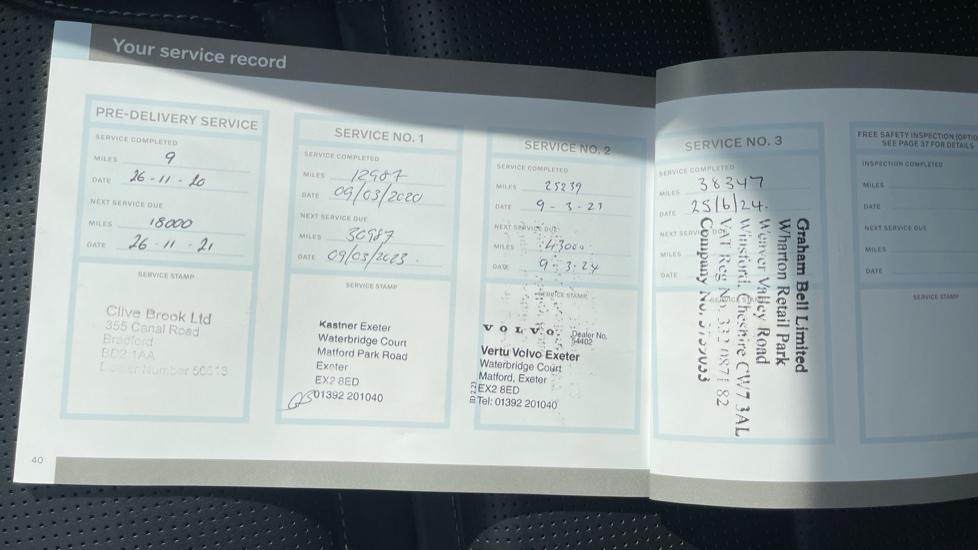 Your service record
PRE-DELIVERY SERVICE
SERVICE COMPLETED
MILES 9
DATE 26-11-20
NEXT SERVICE DUE
MILES 18000
DATE 26-11-21
SERVICE STAMP
Clive Brook Ltd
355 Canal Road
Bradford
BD2 1AA
Number
SERVICE NO. 1
SERVICE COMPLETED
MILES
DATE 09/03/2020
NEXT SERVICE DUE
MILES 30987
DATE 09/03/2023.
SERVICE STAMP
Kastner Exeter
Waterbridge Court
Matford Park Road
Exeter
EX2 8ED
01392 201040
SERVICE NO. 2
SERVICE COMPLETED
MILES 25239
DATE 9-3-23
NEXT SERVICE DUE
MILES 43000
DATE 9-3-24
SERVICE STAMP
VOLVO
Dealer No.
54402
Vertu Volvo Exeter
Waterbridge Court
Matford, Exeter
EX2 8ED
Tel: 01392 201040
SERVICE NO. 3
SERVICE COMPLETED
MILES 38347
DATE 25/6/24.
NEXT SERVICE DUE
MILES
DATE
Graham Bell Limited
Wharton Retail Park
Weaver Valley Road
Winsford, Cheshire CW7 3AL
VAT Reg No. 332 0871 82
Company No.
FREE SAFETY INSPECTION (OPTIO
SEE PAGE 37 FOR DETAILS
INSPECTION COMPLETED
MILES
DATE
NEXT SERVICE DUE
MILES
DATE
SERVICE STAMP
40